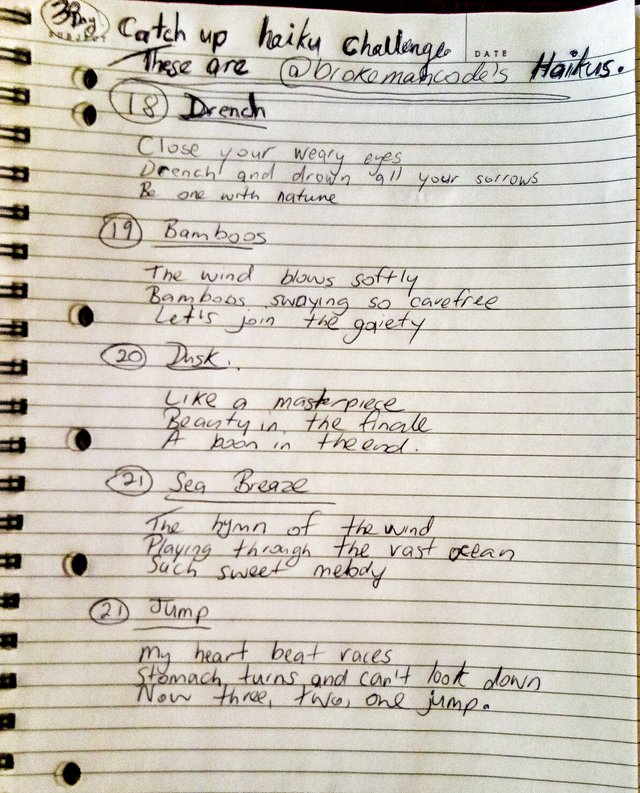 30 Day
Catch up haiku challenge
DATE
These are @brokemancode's Haikus.
18 Drench
Close your weary eyes
Drench and drown all your sorrows
Be one with nature
19 Bamboos
The wind blows softly
Bamboos swaying so carefree
Let's join the gaiety
20 Dusk.
Like a masterpiece
Beauty in the finale
A boon in the end.
21 Sea Breaze
The hymn of the wind
Playing through the vast ocean
Such sweet melody
21 Jump
My heart beat races
Stomach turns and can't look down
Now three, two, one jump.